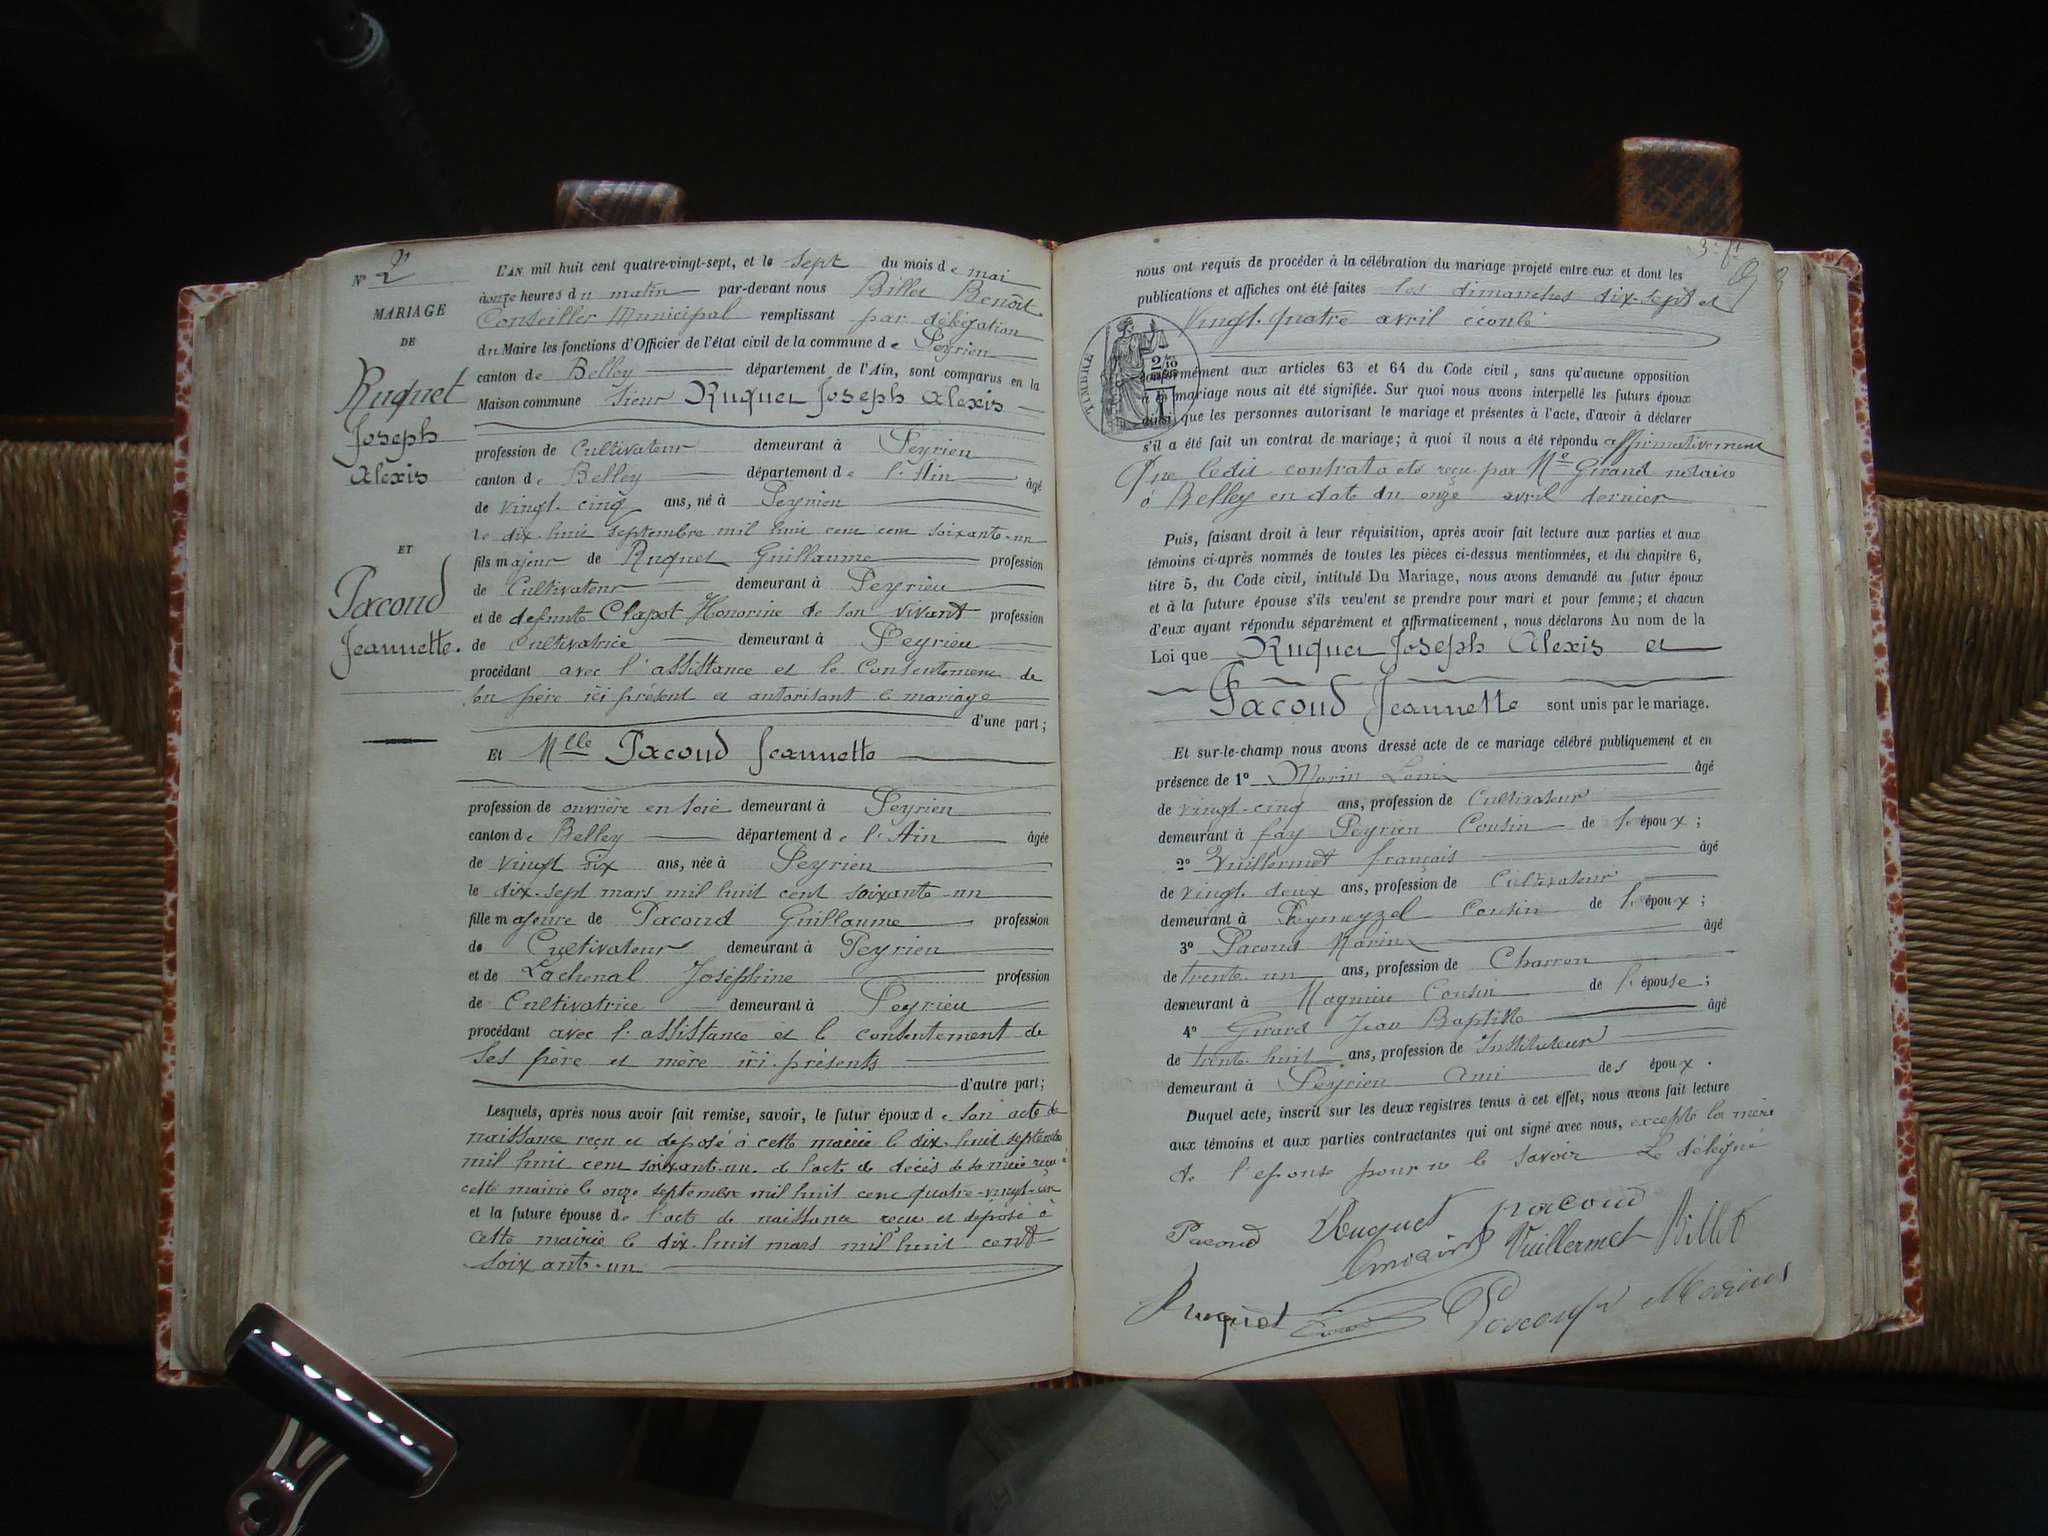 N° 2
MARIAGE
DE
Ruquet
Joseph
Alexis
ET
Pacoud
Jeannette.
L'AN mil huit cent quatre-vingt-sept, et le sept du mois de mai
à onze heures du matin par-devant nous Billet Benoît
Conseiller Municipal remplissant par délégation
du Maire les fonctions d'Officier de l'état civil de la commune de Peyrieu
canton de Belley département de l'Ain, sont comparus en la
Maison commune Sieur Ruquet Joseph Alexis
profession de Cultivateur demeurant à Peyrieu
canton de Belley département de l'Ain âgé
de vingt-cinq ans, né à Peyrieu
le dix-huit septembre mil huit cent cent soixante-un
fils majeur de Ruquet Guillaume profession
de Cultivateur demeurant à Peyrieu
et de defunte Clapot Honorine de son vivant profession
de Cultivatrice demeurant à Peyrieu
procédant avec l'assistance et le consentement de
son père ici présent et autorisant le mariage
d'une part;
Et Mlle Pacoud Jeannette
profession de ouvrière en soie demeurant à Peyrieu
canton de Belley département de l'Ain âgée
de vingt six ans, née à Peyrieu
le dix-sept mars mil huit cent soixante-un
fille majeure de Pacoud Guillaume profession
de Cultivateur demeurant à Peyrieu
et de Lachenal Joséphine profession
de Cultivatrice demeurant à Peyrieu
procédant avec l'assistance et le consentement de
ses père et mère ici présents
d'autre part;
Lesquels, après nous avoir fait remise, savoir, le futur époux de son acte de
naissance reçu et déposé à cette mairie le dix-huit septembre
mil huit cent soixante-un de l'acte de décès de sa mère reçu à
cette mairie le onze septembre mil huit cent quatre-vingt-un
et la future épouse de l'acte de naissance reçu et déposé à
cette mairie le dix-huit mars mil huit cent
soixante-un
nous ont requis de procéder à la célébration du mariage projeté entre eux et dont les
publications et affiches ont été faites les dimanches dix-sept et
vingt-quatre avril écoulé
TIMBRE
conformément aux articles 63 et 64 du Code civil, sans qu'aucune opposition
mariage nous ait été signifiée. Sur quoi nous avons interpellé les futurs époux
ainsi que les personnes autorisant le mariage et présentes à l'acte, d'avoir à déclarer
s'il a été fait un contrat de mariage; à quoi il nous a été répondu affirmativement
Que ledit contrat a été reçu par Me Girand notaire
à Belley en date du onze avril dernier
Puis, faisant droit à leur réquisition, après avoir fait lecture aux parties et aux
témoins ci-après nommés de toutes les pièces ci-dessus mentionnées, et du chapitre 6,
titre 5, du Code civil, intitulé Du Mariage, nous avons demandé au futur époux
et à la future épouse s'ils veulent se prendre pour mari et pour femme; et chacun
d'eux ayant répondu séparément et affirmativement, nous déclarons Au nom de la
Loi que Ruquet Joseph Alexis et
Pacoud Jeannette sont unis par le mariage.
Et sur-le-champ nous avons dressé acte de ce mariage célébré publiquement et en
présence de 1° Morin âgé
de vingt-cinq ans, profession de Cultivateur
demeurant à fay Peyrieu Cousin de l'époux;
2° Vuillermet françois âgé
de vingt-deux ans, profession de Cultivateur
demeurant à Peymeyzel Cousin de l'époux;
3° Pacoud Marin âgé
de trente-un ans, profession de Charron
demeurant à Magnieu Cousin de l'épouse;
4° Girard Jean Baptiste âgé
de trente-huit ans, profession de Instituteur
demeurant à Peyrieu Ami des époux.
Duquel acte, inscrit sur les deux registres tenus à cet effet, nous avons fait lecture
aux témoins et aux parties contractantes qui ont signé avec nous, excepté la mère
de l'épouse pour ne le savoir Le délégué
Pacoud Ruquet pacoud
morin Vuillermet Billet
Ruquet Pacoud Marius